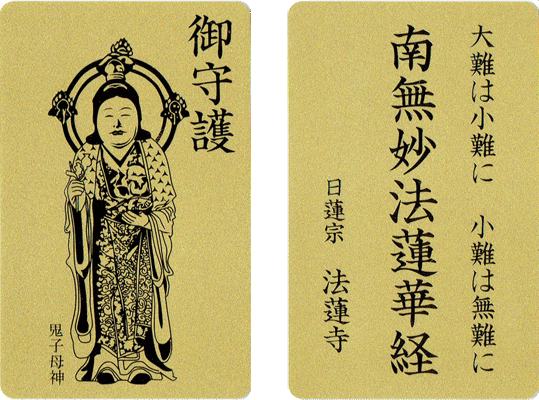 御守護
鬼子母神
大難は小難に　小難は無難に
南無妙法蓮華経
日蓮宗　法蓮寺